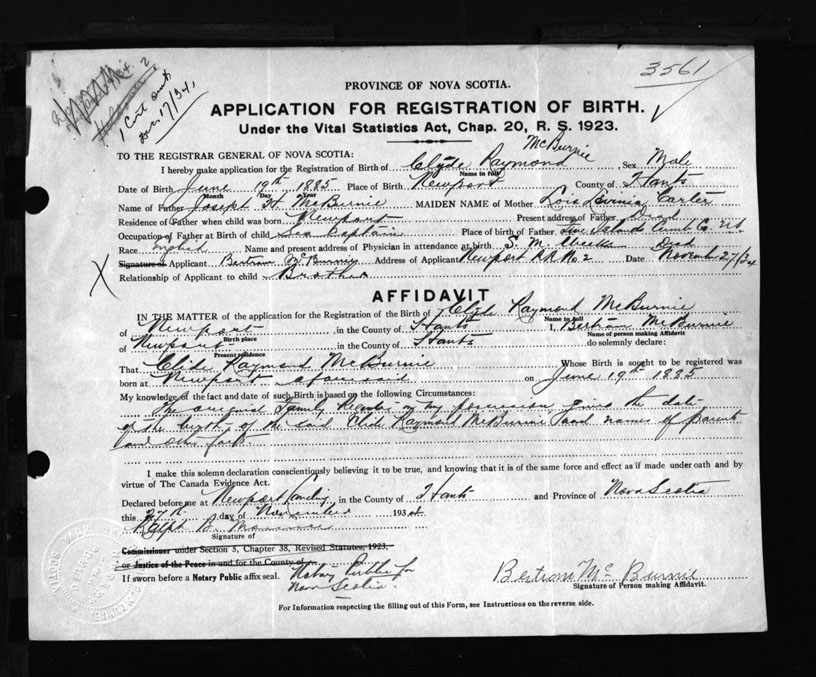 3561
1 Cert out
Dec 17/34,
PROVINCE OF NOVA SCOTIA.
APPLICATION FOR REGISTRATION OF BIRTH.
Under the Vital Statistics Act, Chap. 20, R. S. 1923.
TO THE REGISTRAR GENERAL OF NOVA SCOTIA:
I hereby make application for the Registration of Birth of Clyde Raymond McBurnie Sex Male
Name in full
Date of Birth June 19th 1885 Place of Birth Newport County of Hants
Month Day Year
Name of Father Joseph H McBurnie MAIDEN NAME of Mother Lois Lavinia Carter
Residence of Father when child was born Newport Present address of Father Dead
Occupation of Father at Birth of child Sea Captain Place of birth of Father Five Islands
Race English Name and present address of Physician in attendance at birth S. M. Dead
Signature of Applicant Bertram McBurnie Address of Applicant Newport RR No. 2 Date November 27/34
Relationship of Applicant to child Brother
AFFIDAVIT
IN THE MATTER of the application for the Registration of the Birth of Clyde Raymond McBurnie
Name in full
of Newport in the County of Hants I, Bertram McBurnie
Birth place Name of person making Affidavit
of Newport in the County of Hants do solemnly declare:
Present residence
That Clide Raymond McBurnie Whose Birth is sought to be registered was
born at Newport aforesaid on June 19th 1885
My knowledge of the fact and date of such Birth is based on the following Circumstances:
The original Family Register in my possession gives the date
of the birth of the said Clide Raymond McBurnie and names of parents
and other facts
I make this solemn declaration conscientiously believing it to be true, and knowing that it is of the same force and effect as if made under oath and by
virtue of The Canada Evidence Act.
Declared before me at Newport Landing in the County of Hants and Province of Nova Scotia
this 27th day of November 1934
Ralph
Signature of
Commissioner under Section 3, Chapter 38, Revised Statutes, 1923,
or Justice of the Peace in and for the County of
If sworn before a Notary Public affix seal. Notary Public for
Nova Scotia
Bertram McBurnie
Signature of Person making Affidavit.
For Information respecting the filling out of this Form, see Instructions on the reverse side.